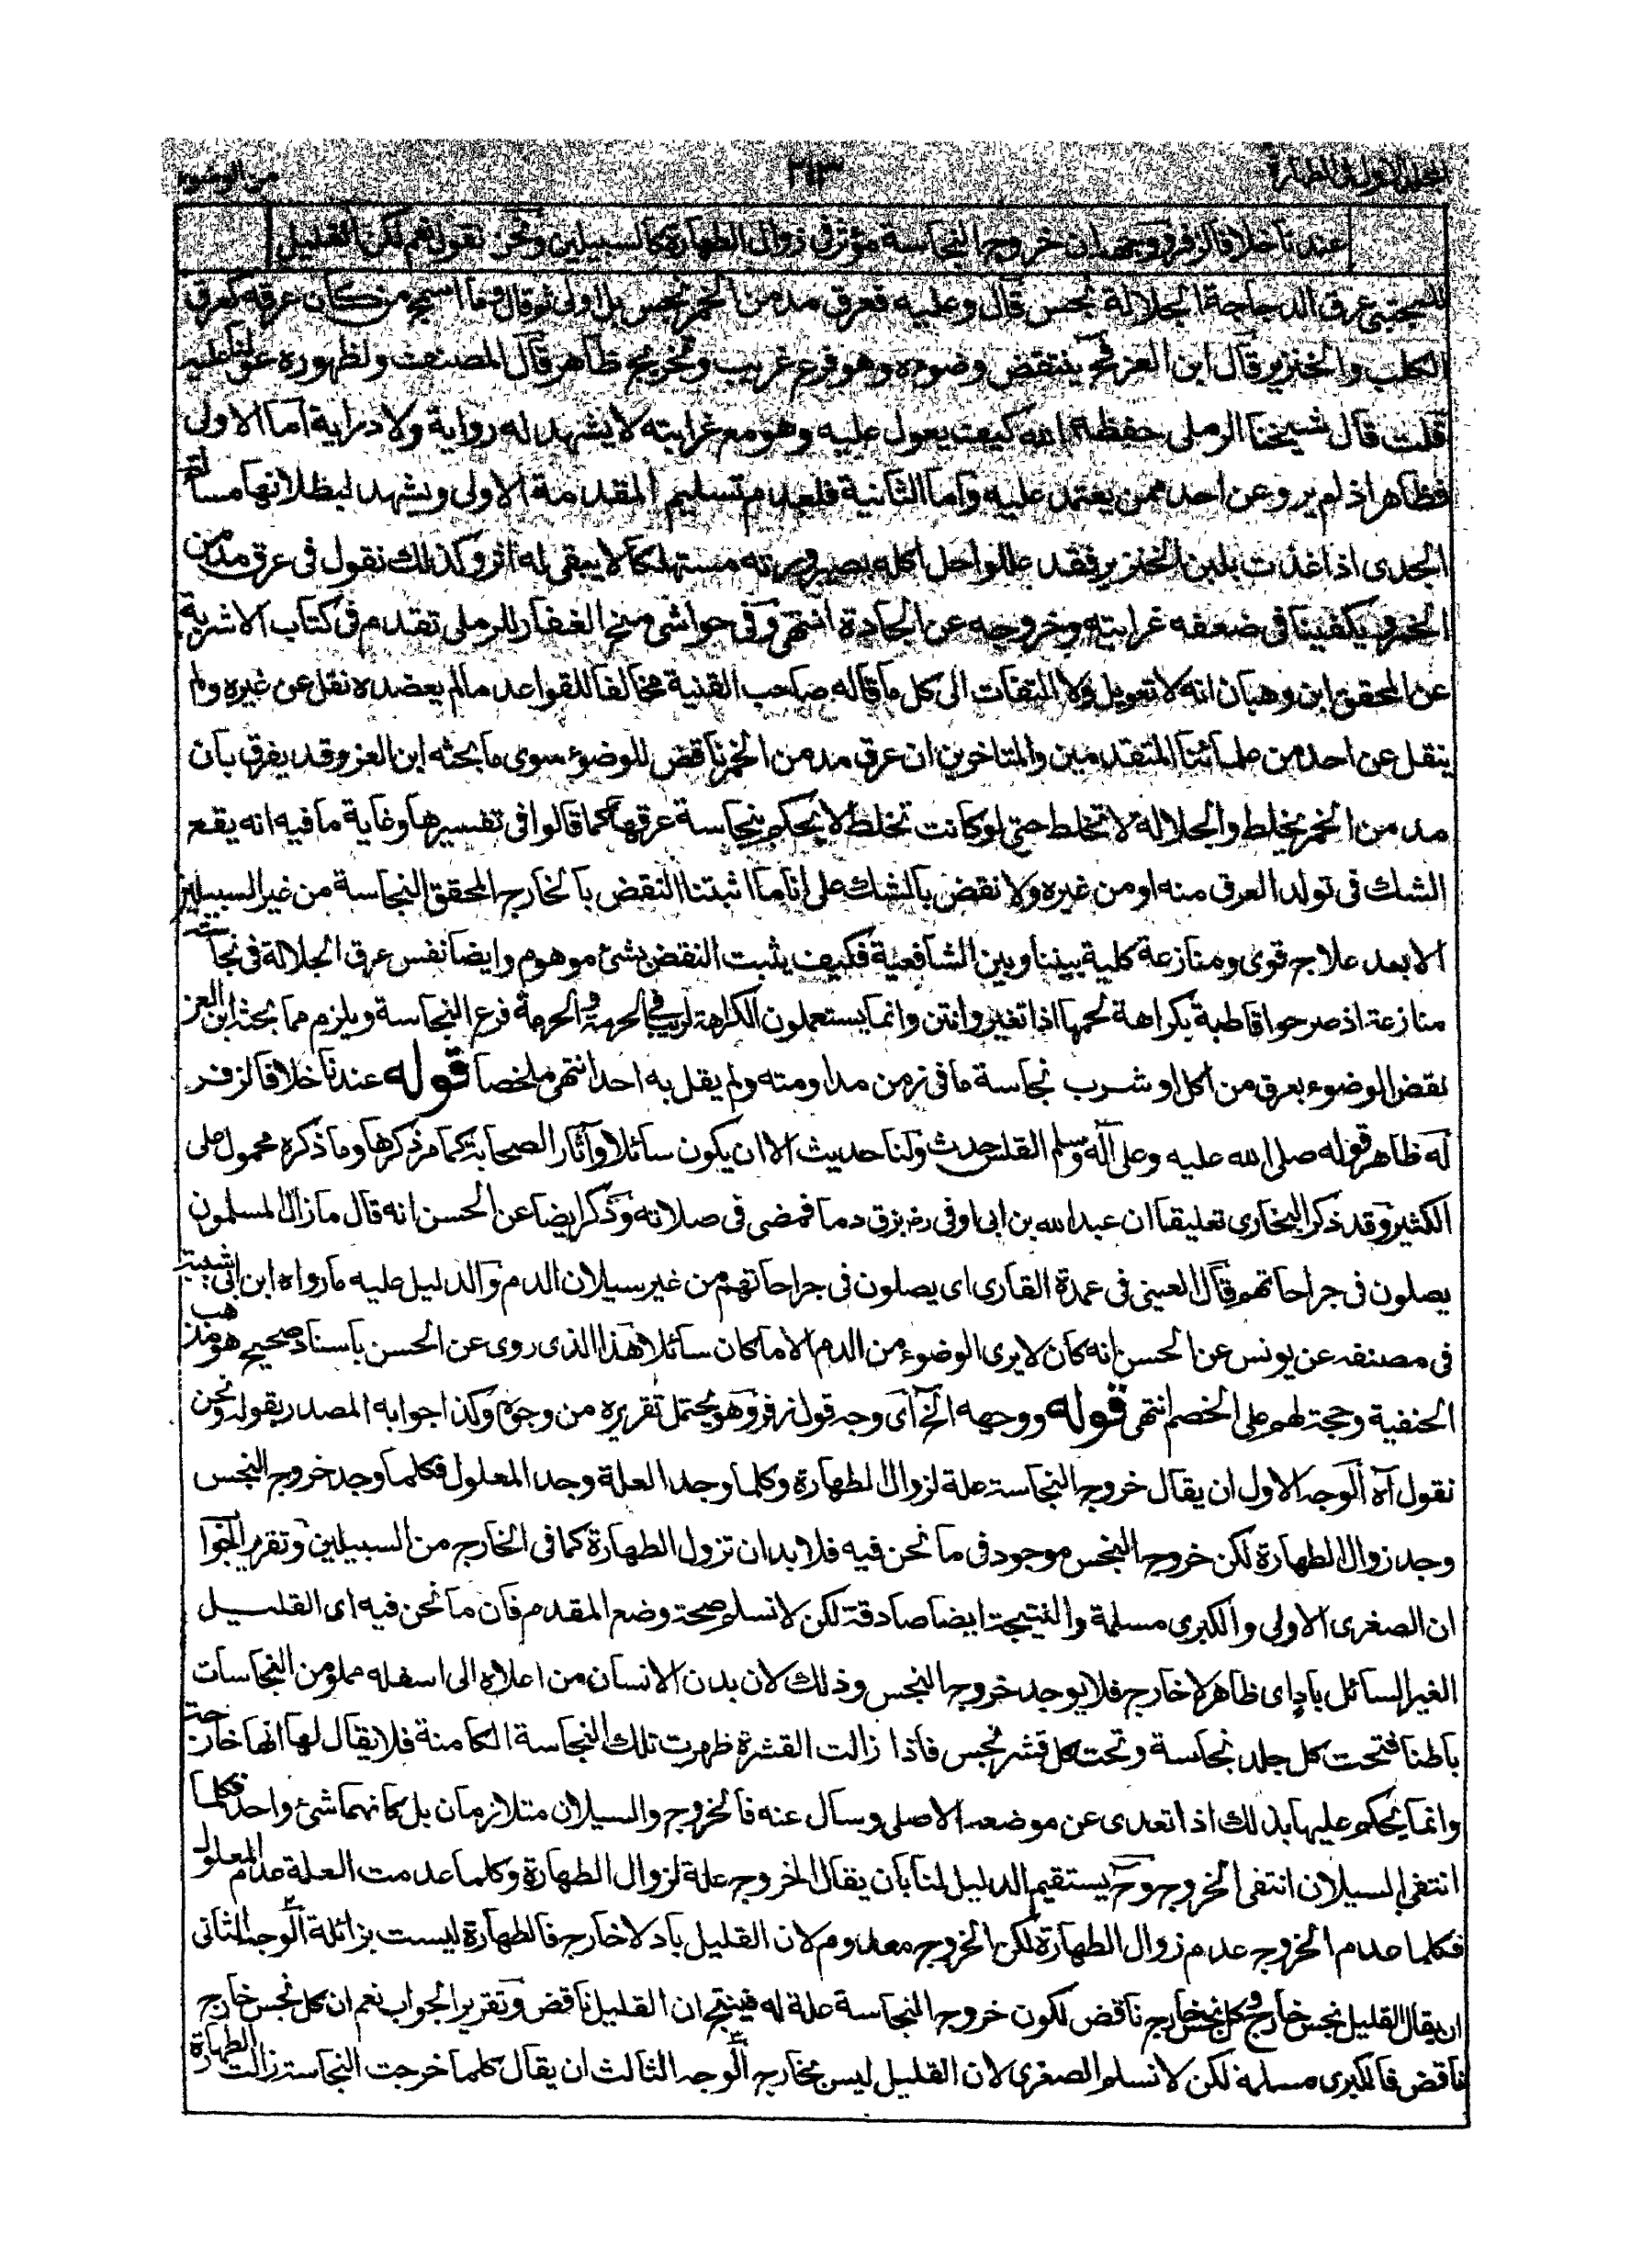 المجلد الاول فى الطهارة ٢١٣ من الوضوء
عندنا خلافا لزفر ووجهه ان خروج النجاسة مؤثر فى زوال الطهارة كالسبيلين ونحن نقول نعم لكن القليل
المجتبى عرق الدجاجة الجلالة نجس قال وعليه فعرق مدمن الخمر نجس بل اولى ثم قال وما اسمج من كان عرقه كعرق
الكلب والخنزير قال ابن العز فح ينتقض وضوءه وهو فرع غريب وتخريج ظاهر قال المصنف ولظهوره عولنا عليه
قلت قال شيخنا الرملى حفظه الله كيف يعول عليه وهو مع غرابته لا يشهد له رواية ولا دراية اما الاولى
فظاهر اذ لم يرو عن احد ممن يعتمد عليه واما الثانية فلعدم تسليم المقدمة الاولى ويشهد لبطلانها مسألة
الجدى اذا غذت بلبن الخنزير فقد عللوا حل اكله بصيرورته مستهلكا لا يبقى له اثر وكذلك نقول فى عرق مدمن
الخمر ويكفينا فى ضعفه غرابته وخروجه عن الجادة انتهى وفى حواشى منح الغفار للرملى تقدم فى كتاب الاشربة
عن المحقق ابن وهبان انه لا تعويل ولا التفات الى كل ما قاله صاحب القنية مخالفا للقواعد ما لم يعضده نقل عن غيره ولم
ينقل عن احد من علمائنا المتقدمين والمتاخرين ان عرق مدمن الخمر ناقض للوضوء سوى ما بحثه ابن العز وقد يفرق بان
مدمن الخمر يخلط والجلالة لا تخلط حتى لو كانت تخلط لا يحكم بنجاسة عرقها كما قالوا فى تفسيرها وغاية ما فيه انه يقع
الشك فى تولد العرق منه او من غيره ولا نقض بالشك على انا ما اثبتنا النقض بالخارج المحقق النجاسة من غير السبيلين
الا بعد علاج قوى ومنازعة كلية بيننا وبين الشافعية فكيف يثبت النقض بشئ موهوم وايضا نفس عرق الجلالة فى نجاسته
منازعة اذ صرحوا قاطبة بكراهة لحمها اذا تغير وانتن وانما يستعملون الكراهة لريب فى الحرمة والحرمة فرع النجاسة ويلزم مما بحثه ابن العز
نقض الوضوء بعرق من اكل او شرب نجاسة ما فى زمن مداومته ولم يقل به احد انتهى ملخصا قوله عندنا خلافا لزفر
له ظاهر قوله صلى الله عليه وعلى آله وسلم القلس حدث ولنا حديث الا ان يكون سائلا وآثار الصحابة كما مر ذكرها وما ذكره محمول على
الكثير وقد ذكر البخارى تعليقا ان عبد الله بن ابى اوفى رض بزق دما فمضى فى صلاته وذكر ايضا عن الحسن انه قال ما زال المسلمون
يصلون فى جراحاتهم قال العينى فى عمدة القارى اى يصلون فى جراحاتهم من غير سيلان الدم والدليل عليه ما رواه ابن ابى شيبة
فى مصنفه عن يونس عن الحسن انه كان لا يرى الوضوء من الدم الا ما كان سائلا هذا الذى روى عن الحسن باسناد صحيح هو مذهب
الحنفية وحجة لهم على الخصم انتهى قوله ووجهه الخ اى وجه قول زفر وهو يحتمل تقريره من وجوه وكذا جوابه المصدر بقوله ونحن
نقول آه الوجه الاول ان يقال خروج النجاسة علة لزوال الطهارة وكلما وجد العلة وجد المعلول فكلما وجد خروج النجس
وجد زوال الطهارة لكن خروج النجس موجود فى ما نحن فيه فلا بد ان تزول الطهارة كما فى الخارج من السبيلين وتقرير الجواب
ان الصغرى الاولى والكبرى مسلمة والنتيجة ايضا صادقة لكن لا نسلم صحة وضع المقدم فان ما نحن فيه اى القليل
الغير السائل باد اى ظاهر لا خارج فلا يوجد خروج النجس وذلك لان بدن الانسان من اعلاه الى اسفله مملو من النجاسات
باطنا فتحت كل جلد نجاسة وتحت كل قشر نجس فاذا زالت القشرة ظهرت تلك النجاسة الكامنة فلا يقال لها انها خارجة
وانما يحكم عليها بذلك اذا تعدى عن موضعه الاصلى وسال عنه فالخروج والسيلان متلازمان بل كانهما شئ واحد فكلما
انتفى السيلان انتفى الخروج وح يستقيم الدليل لنا بان يقال الخروج علة لزوال الطهارة وكلما عدمت العلة عدم المعلول
فكلما عدم الخروج عدم زوال الطهارة لكن الخروج معدوم لان القليل باد لا خارج فالطهارة ليست بزائلة الوجه الثانى
ان يقال القليل نجس خارج وكل نجس خارج ناقض لكون خروج النجاسة علة له فينتج ان القليل ناقض وتقرير الجواب نعم ان كل نجس خارج
ناقض فالكبرى مسلمة لكن لا نسلم الصغرى لان القليل ليس بخارج الوجه الثالث ان يقال كلما خرجت النجاسة زالت الطهارة